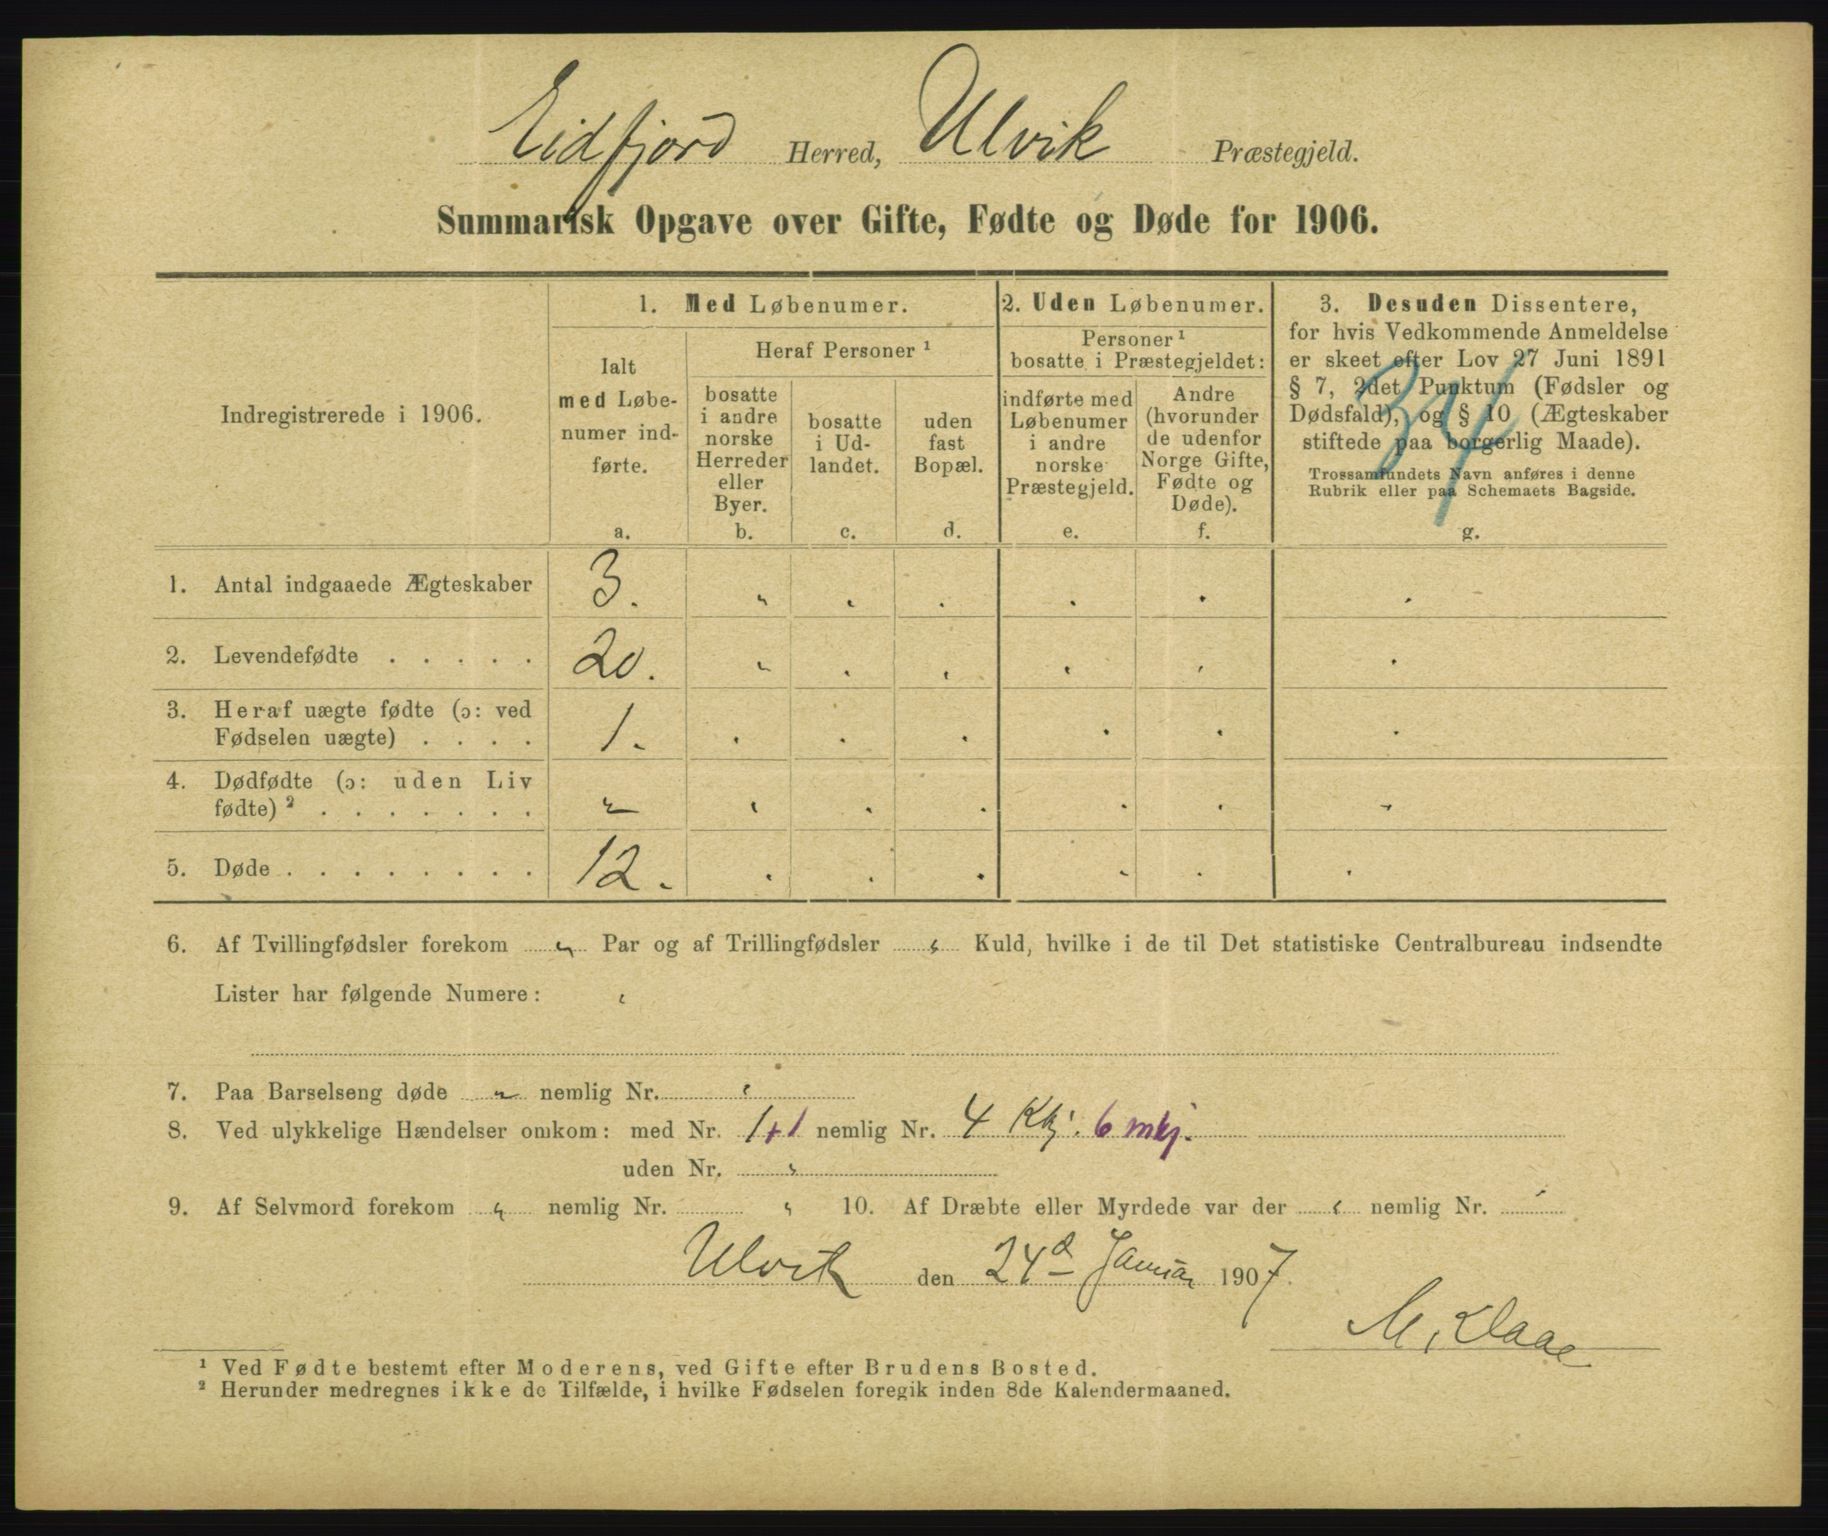 Eidfjord Herred, Ulvik Præstegjeld.
Summarisk Opgave over Gifte, Fødte og Døde for 1906.
Indregistrerede i 1906.
1. Med Løbenumer.
Ialt
med Løbe-
numer ind-
førte.
a.
Heraf Personer ¹
bosatte
i andre
norske
Herreder
eller
Byer.
b.
bosatte
i Ud-
landet.
c.
uden
fast
Bopæl.
d.
2. Uden Løbenumer.
Personer ¹
bosatte i Præstegjeldet:
indførte med
Løbenumer
i andre
norske
Præstegjeld.
e.
Andre
(hvorunder
de udenfor
Norge Gifte,
Fødte og
Døde).
f.
3. Desuden Dissentere,
for hvis Vedkommende Anmeldelse
er skeet efter Lov 27 Juni 1891
§ 7, 2det Punktum (Fødsler og
Dødsfald), og § 10 (Ægteskaber
stiftede paa borgerlig Maade).
Trossamfundets Navn anføres i denne
Rubrik eller paa Schemaets Bagside.
g.
34
1. Antal indgaaede Ægteskaber 3. " . . . . .
2. Levendefødte . . . . . 20. " . . . . .
3. Heraf uægte fødte (ɔ: ved
Fødselen uægte) . . . . 1. . . . . . .
4. Dødfødte (ɔ: uden Liv
fødte) ² . . . . . . . " . . . . . .
5. Døde . . . . . . . . 12. . . . . . .
6. Af Tvillingfødsler forekom " Par og af Trillingfødsler " Kuld, hvilke i de til Det statistiske Centralbureau indsendte
Lister har følgende Numere: "
7. Paa Barselseng døde " nemlig Nr. "
8. Ved ulykkelige Hændelser omkom: med Nr. 1+1 nemlig Nr. 4 Kkj. 6 mkj.
uden Nr. "
9. Af Selvmord forekom " nemlig Nr. " 10. Af Dræbte eller Myrdede var der " nemlig Nr. "
Ulvik den 24d Januar 1907.
M. Klaae
¹ Ved Fødte bestemt efter Moderens, ved Gifte efter Brudens Bosted.
² Herunder medregnes ikke de Tilfælde, i hvilke Fødselen foregik inden 8de Kalendermaaned.